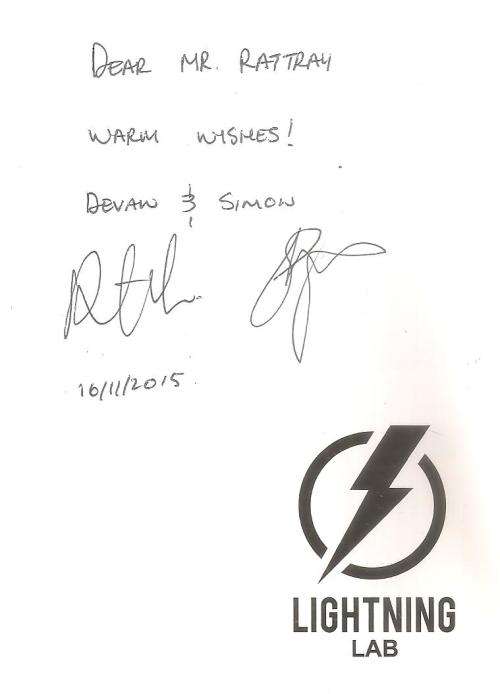 DEAR MR. RATTRAY
WARM WISHES!
DEVAN & SIMON
16/11/2015
LIGHTNING
LAB